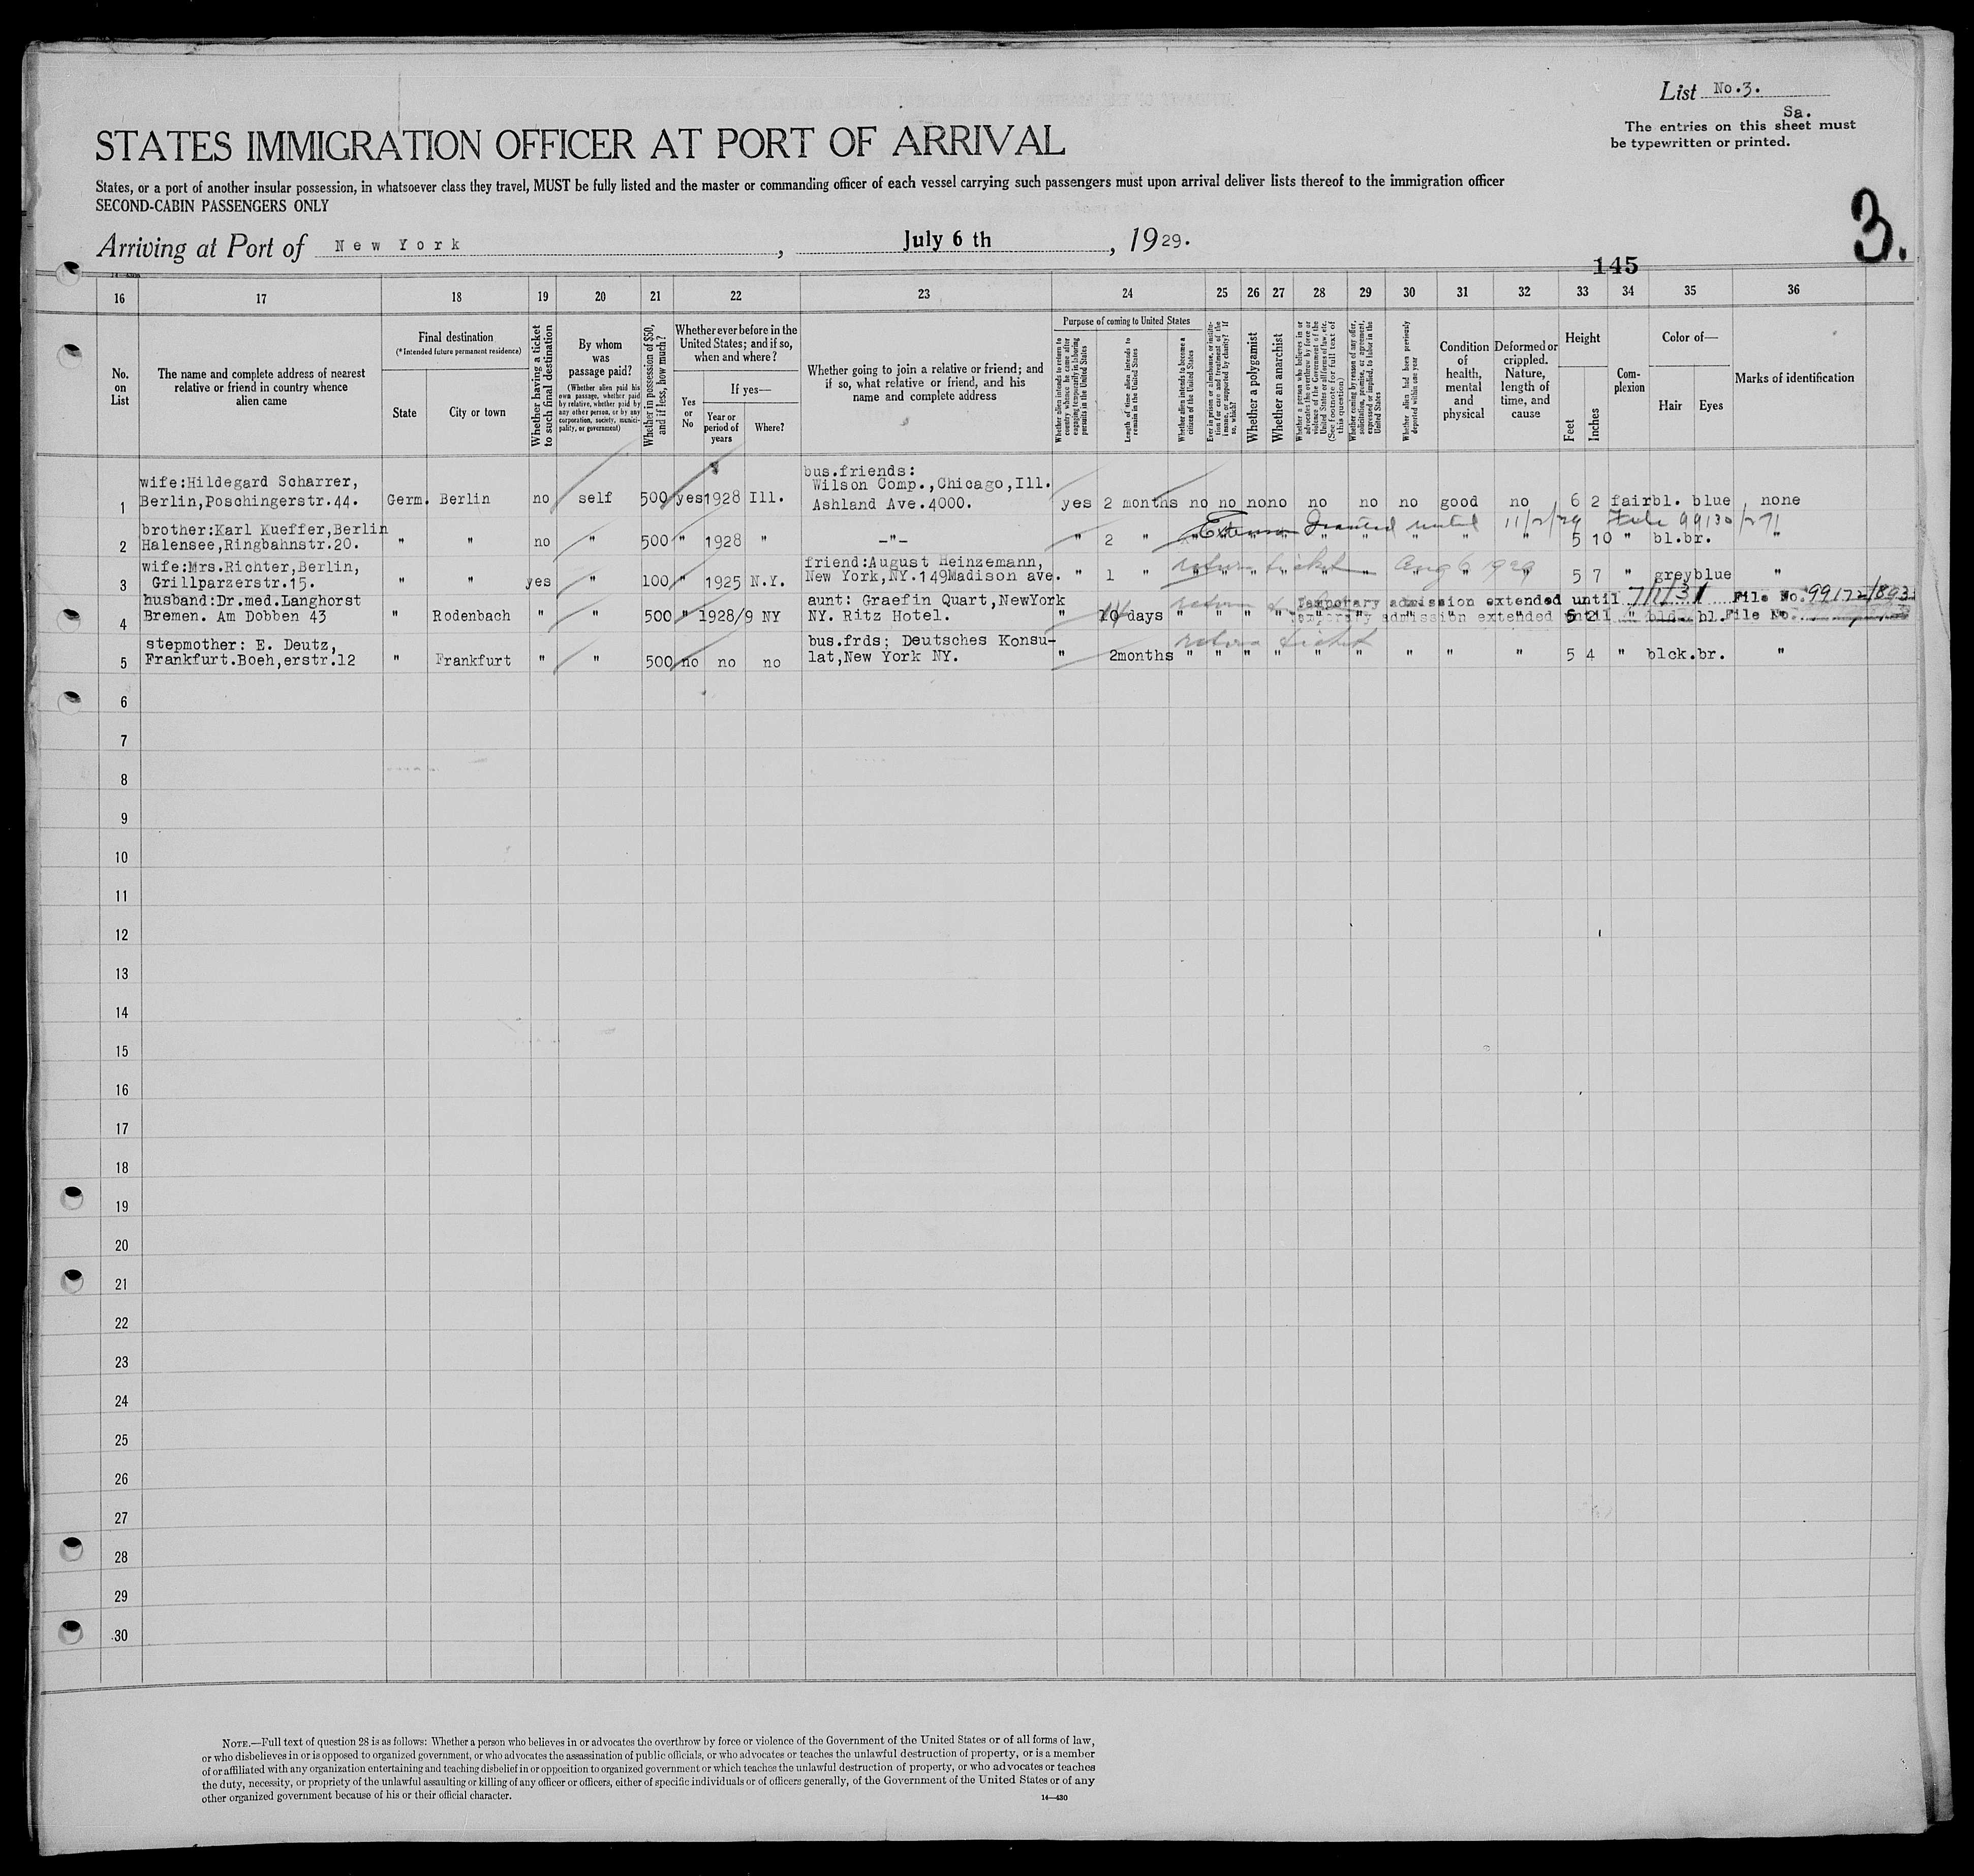 List No.3.
Sa.
The entries on this sheet must
be typewritten or printed.
STATES IMMIGRATION OFFICER AT PORT OF ARRIVAL
States, or a port of another insular possession, in whatsoever class they travel, MUST be fully listed and the master or commanding officer of each vessel carrying such passengers must upon arrival deliver lists thereof to the immigration officer
SECOND-CABIN PASSENGERS ONLY
3.
Arriving at Port of New York, July 6 th, 1929.
145
16 17 18 19 20 21 22 23 24 25 26 27 28 29 30 31 32 33 34 35 36
No. on List
The name and complete address of nearest relative or friend in country whence alien came
Final destination
(*Intended future permanent residence)
State
City or town
Whether having a ticket to such final destination
By whom was passage paid?
(Whether alien paid his own passage, whether paid by relative, whether paid by any other person, or by any corporation, society, municipality, or government)
Whether in possession of $50, and if less, how much?
Whether ever before in the United States; and if so, when and where?
Yes or No
If yes—
Year or period of years
Where?
Whether going to join a relative or friend; and if so, what relative or friend, and his name and complete address
Purpose of coming to United States
Whether alien intends to return to country whence he came after engaging temporarily in laboring pursuits in the United States
Length of time alien intends to remain in the United States
Whether alien intends to become a citizen of the United States
Ever in prison or almshouse, or institution for care and treatment of the insane, or supported by charity? If so, which?
Whether a polygamist
Whether an anarchist
Whether a person who believes in or advocates the overthrow by force or violence of the Government of the United States or all forms of law, etc. (See footnote for full text of this question)
Whether coming by reason of any offer, solicitation, promise, or agreement, expressed or implied, to labor in the United States
Whether alien had been previously deported within one year
Condition of health, mental and physical
Deformed or crippled. Nature, length of time, and cause
Height
Feet
Inches
Complexion
Color of—
Hair
Eyes
Marks of identification
wife:Hildegard Scharrer, bus.friends:
Wilson Comp.,Chicago,Ill.
1 Berlin,Poschingerstr.44. Germ. Berlin no self 500 yes 1928 Ill. Ashland Ave.4000. yes 2 months no no no no no no no good no 6 2 fair bl. blue none
brother:Karl Kueffer,Berlin Extension Granted until 11/2/29 File 99130/271
2 Halensee,Ringbahnstr.20. " " no " 500 " 1928 " -"- " 2 " " " " " " " " " " 5 10 " bl. br. "
wife:Mrs.Richter,Berlin, friend:August Heinzemann, return ticket Aug 6 1929
3 Grillparzerstr.15. " " yes " 100 " 1925 N.Y. New York,NY.149Madison ave. " 1 " " " " " " " " " " 5 7 " grey blue "
husband:Dr.med.Langhorst aunt: Graefin Quart,NewYork Temporary admission extended until 7/1/31 File No. 99172/893
4 Bremen. Am Dobben 43 " Rodenbach " " 500 " 1928/9 NY NY. Ritz Hotel. " days " " " " " " " " " 5 2 " bld. bl.
Temporary admission extended until File No.
stepmother: E. Deutz, bus.frds; Deutsches Konsu- return ticket
5 Frankfurt.Boeh,erstr.12 " Frankfurt " " 500 no no no lat,New York NY. " 2months " " " " " " " " " 5 4 " blck. br. "
6
7
8
9
10
11
12
13
14
15
16
17
18
19
20
21
22
23
24
25
26
27
28
29
30
NOTE.—Full text of question 28 is as follows: Whether a person who believes in or advocates the overthrow by force or violence of the Government of the United States or of all forms of law,
or who disbelieves in or is opposed to organized government, or who advocates the assassination of public officials, or who advocates or teaches the unlawful destruction of property, or is a member
of or affiliated with any organization entertaining and teaching disbelief in or opposition to organized government or which teaches the unlawful destruction of property, or who advocates or teaches
the duty, necessity, or propriety of the unlawful assaulting or killing of any officer or officers, either of specific individuals or of officers generally, of the Government of the United States or of any
other organized government because of his or their official character.
14—430